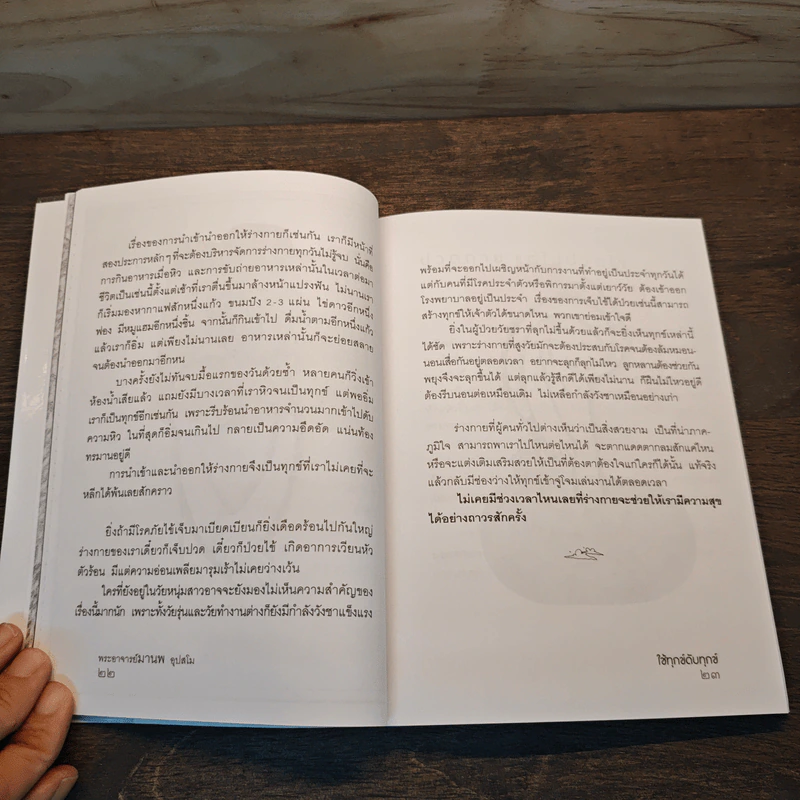 เรื่องของการนำเข้านำออกให้ร่างกายก็เช่นกัน เราก็มีหน้าที่
สองประการหลักๆ ที่จะต้องบริหารจัดการร่างกายทุกวันไม่รู้จบ นั่นคือ
การกินอาหารเมื่อหิว และการขับถ่ายอาหารเหล่านั้นในเวลาต่อมา
ชีวิตเป็นเช่นนี้ตั้งแต่เช้าที่เราตื่นขึ้นมาล้างหน้าแปรงฟัน ไม่นานเรา
ก็เริ่มมองหากาแฟสักหนึ่งแก้ว ขนมปัง 2-3 แผ่น ไข่ดาวอีกหนึ่ง
ฟอง มีหมูแฮมอีกหนึ่งชิ้น จากนั้นก็กินเข้าไป ดื่มน้ำตามอีกหนึ่งแก้ว
แล้วเราก็อิ่ม แต่เพียงไม่นานเลย อาหารเหล่านั้นก็จะย่อยสลาย
จนต้องนำออกมาอีกหน
บางครั้งยังไม่ทันจบมื้อแรกของวันด้วยซ้ำ หลายคนก็วิ่งเข้า
ห้องน้ำเสียแล้ว แถมยังมีบางเวลาที่เราหิวจนเป็นทุกข์ แต่พออิ่ม
เราก็เป็นทุกข์อีกเช่นกัน เพราะรีบร้อนนำอาหารจำนวนมากเข้าไปดับ
ความหิว ในที่สุดก็อิ่มจนเกินไป กลายเป็นความอึดอัด แน่นท้อง
ทรมานอยู่ดี
การนำเข้าและนำออกให้ร่างกายจึงเป็นทุกข์ที่เราไม่เคยที่จะ
หลีกได้พ้นเลยสักคราว
ยิ่งถ้ามีโรคภัยไข้เจ็บมาเบียดเบียนก็ยิ่งเดือดร้อนไปกันใหญ่
ร่างกายของเราเดี๋ยวก็เจ็บปวด เดี๋ยวก็ป่วยไข้ เกิดอาการเวียนหัว
ตัวร้อน มีแต่ความอ่อนเพลียมารุมเร้าไม่เคยว่างเว้น
ใครที่ยังอยู่ในวัยหนุ่มสาวอาจจะยังมองไม่เห็นความสำคัญของ
เรื่องนี้มากนัก เพราะทั้งวัยรุ่นและวัยทำงานต่างก็ยังมีกำลังวังชาแข็งแรง
พระอาจารย์มานพ อุปสโม
๒๒
พร้อมที่จะออกไปเผชิญหน้ากับการงานที่ทำอยู่เป็นประจำทุกวันได้
แต่กับคนที่มีโรคประจำตัวหรือพิการมาตั้งแต่เยาว์วัย ต้องเข้าออก
โรงพยาบาลอยู่เป็นประจำ เรื่องของการเจ็บไข้ได้ป่วยเช่นนี้สามารถ
สร้างทุกข์ให้เจ้าตัวได้ขนาดไหน พวกเขาย่อมเข้าใจดี
ยิ่งในผู้ป่วยวัยชราที่ลุกไม่ขึ้นด้วยแล้วก็จะยิ่งเห็นทุกข์เหล่านี้
ได้ชัด เพราะร่างกายที่สูงวัยมักจะต้องประสบกับโรคจนต้องล้มหมอน-
นอนเสื่อกันอยู่ตลอดเวลา อยากจะลุกก็ลุกไม่ไหว ลูกหลานต้องช่วยกัน
พยุงจึงจะลุกขึ้นได้ แต่ลุกแล้วรู้สึกดีได้เพียงไม่นาน ก็ฝืนไม่ไหวอยู่ดี
ต้องรีบนอนต่อเหมือนเดิม ไม่เหลือกำลังวังชาเหมือนอย่างเก่า
ร่างกายที่ผู้คนทั่วไปต่างเห็นว่าเป็นสิ่งสวยงาม เป็นที่น่าภาค-
ภูมิใจ สามารถพาเราไปไหนต่อไหนได้ จะตากแดดตากลมสักแค่ไหน
หรือจะแต่งเติมเสริมสวยให้เป็นที่ต้องตาต้องใจแก่ใครก็ได้นั้น แท้จริง
แล้วกลับมีช่องว่างให้ทุกข์เข้าจู่โจมเล่นงานได้ตลอดเวลา
ไม่เคยมีช่วงเวลาไหนเลยที่ร่างกายจะช่วยให้เรามีความสุข
ได้อย่างถาวรสักครั้ง
ใช้ทุกข์ดับทุกข์
๒๓